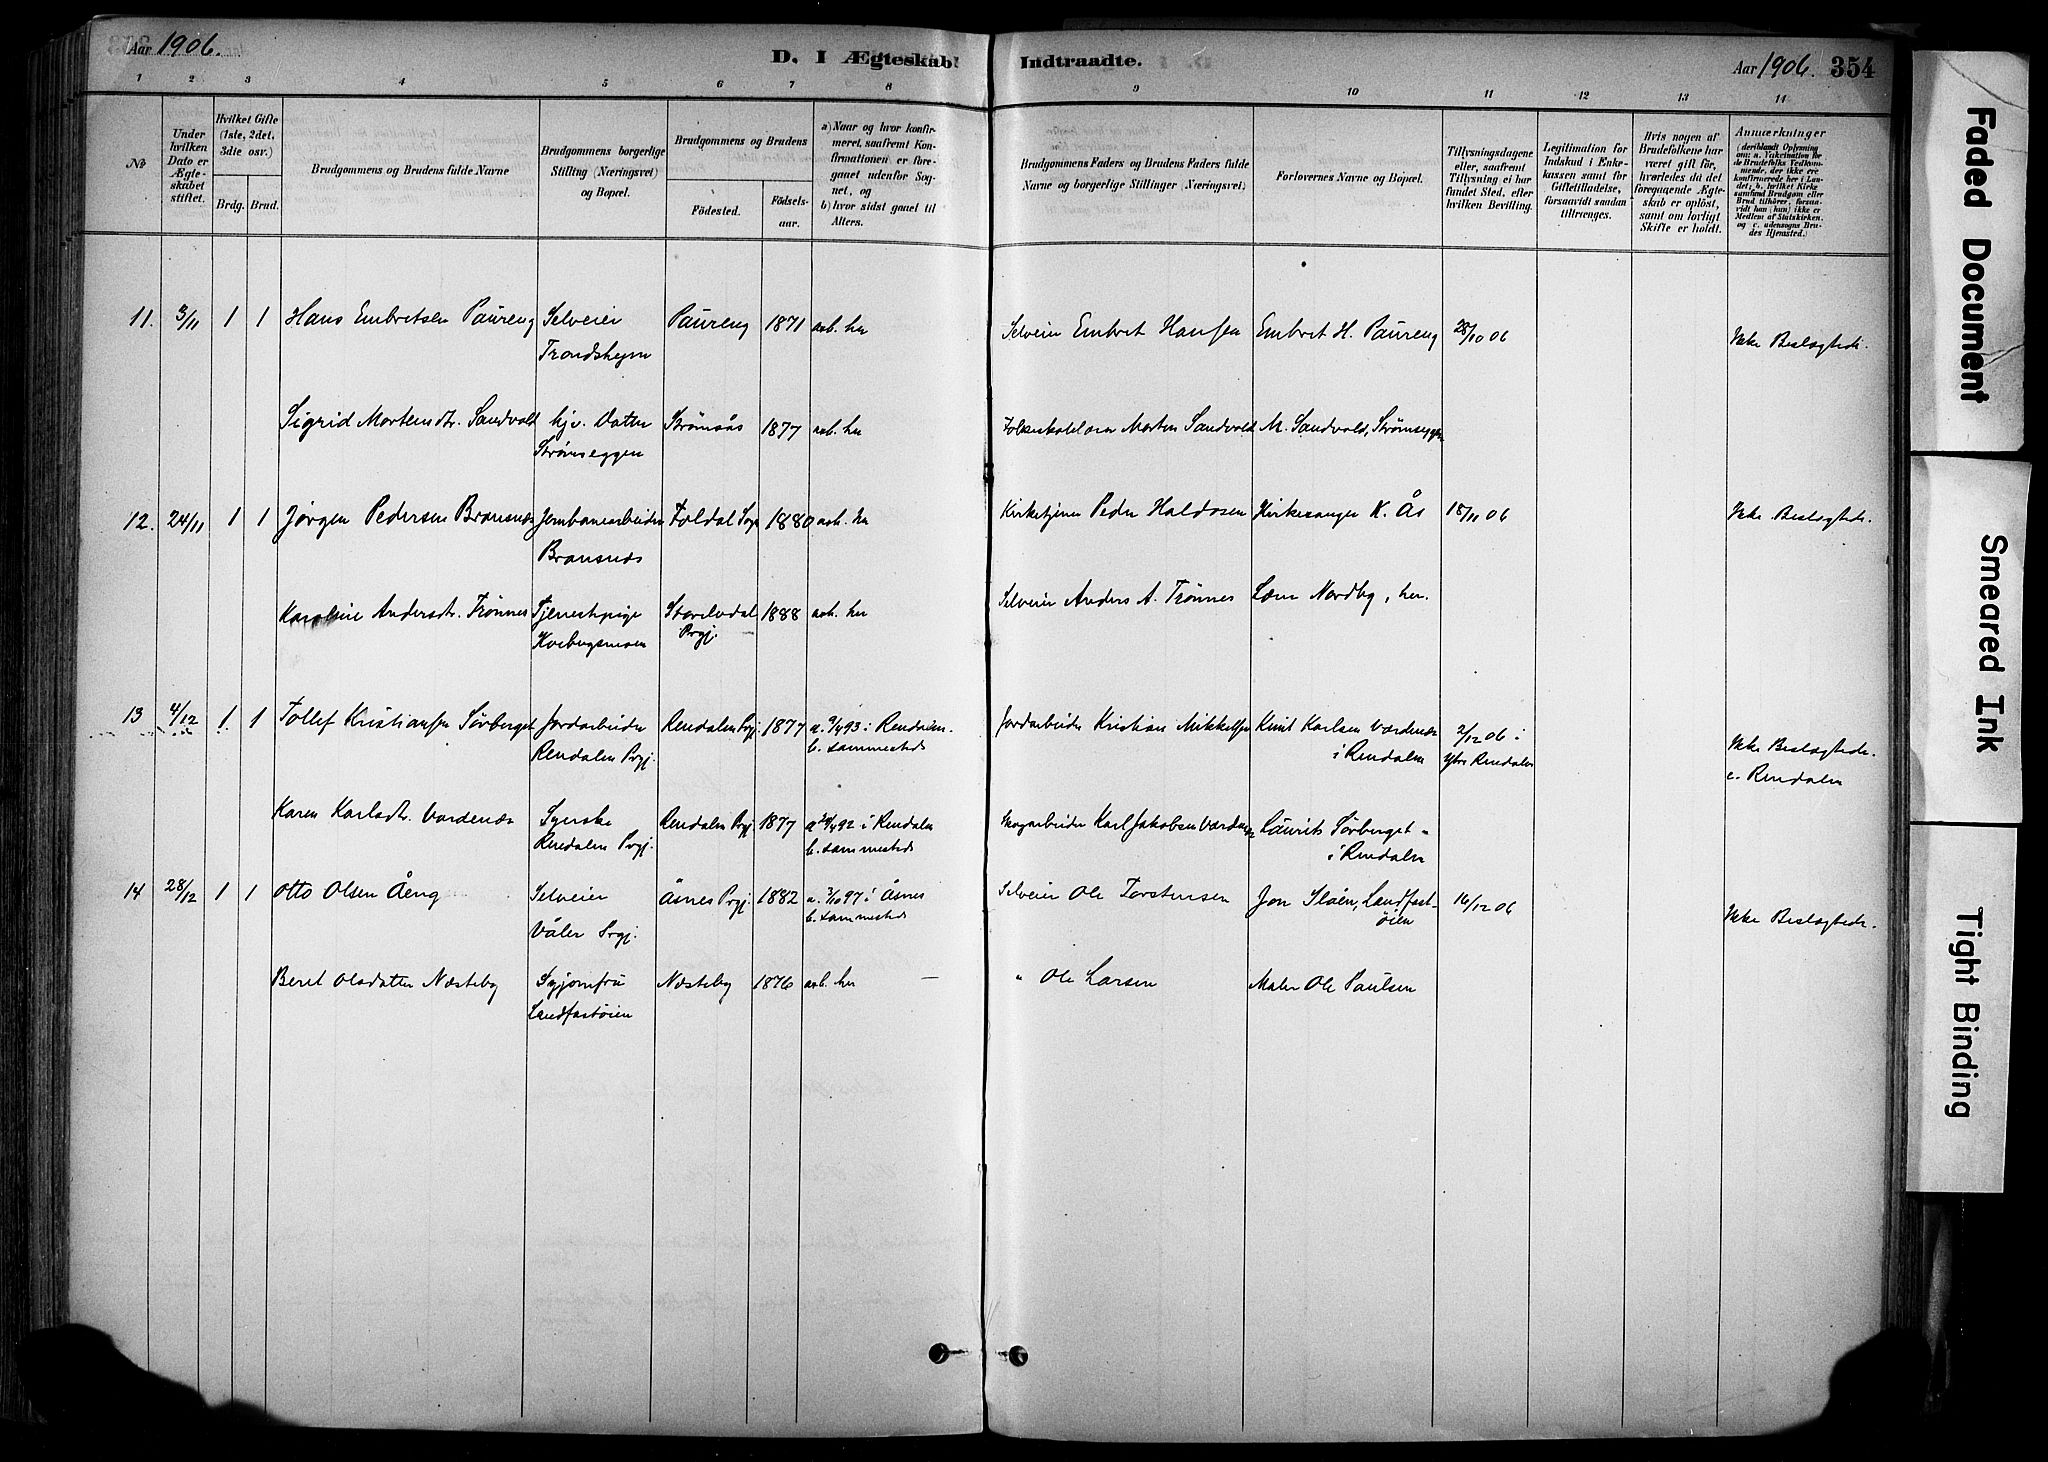 Aar 1906.
D. I Ægteskab Indtraadte.
Aar 1906. 354
1 2 3 4 5 6 7 8 9 10 11 12 13 14
No
Under hvilken Dato er Ægteskabet stiftet.
Hvilket Gifte (1ste, 2det, 3die osv.)
Brdg. Brud.
Brudgommens og Brudens fulde Navne
Brudgommens borgerlige Stilling (Næringsvei) og Bopæl.
Brudgommens og Brudens
Fødested.
Fødselsaar.
a) Naar og hvor konfirmeret, saafremt Konfirmationen er foregaaet udenfor Sognet, og
b) hvor sidst gaaet til Alters.
Brudgommens Faders og Brudens Faders fulde Navne og borgerlige Stillinger (Næringsvei).
Forlovernes Navne og Bopæl.
Tillysningsdagene eller, saafremt Tillysning ei har fundet Sted, efter hvilken Bevilling.
Legitimation for Indskud i Enkekassen samt for Giftetilladelse, forsaavidt saadan tiltrænges.
Hvis nogen af Brudefolkene har været gift før, hvorledes da det foregaaende Ægteskab er opløst, samt om lovligt Skifte er holdt.
Anmærkninger (deriblandt Oplysning om: a. Vakcination for de Brudefolks Vedkommende, der ikke ere konfirmerede her i Landet; b. hvilket Kirkesamfund Brudgom eller Brud tilhører, forsaavidt han (hun) ikke er Medlem af Statskirken, og c. udensogns Brudes Hjemsted.)
11. 3/11 1 1 Hans Embretsen Paureng Selveier Paureng 1871 Selveier Embret Hansen Embret H. Paureng 28/10 06 Ikke Beslægtede.
Trondshejm
Sigrid Mortensdtr. Sandvold hjv. Datter Strømsås 1877 Morten Sandvold M. Sandvold, Strømseggen
Strømseggen
12. 24/11 1 1 Jørgen Pedersen Brænsnæs Jernbanearbeider Foldal Sogn 1880 Kirketjener Peder Haldosen Kirkesanger K. Ås 18/11 06 Ikke Beslægtede.
Brænsnæs
Karoline Andersdtr. Trønnes Tjenestepige Storelvdal 1888 Selveier Anders A. Trønnes Lærer Nordby, her.
Prgj.
13 4/12 1 1 Tollef Kristiansen Sørberget Jordarbeider Rendalen Prgj. 1877 Jordarbeider Kristian Mikkelsen Knut Karlsen Vardenæs 2/12 06 i
Rendalen Prgj. b. sammesteds i Rendalen Ytre Rendalen Ikke Beslægtede.
c. Rendalen
Karen Karlsdtr. Vardenæs Syerske Rendalen Prgj. 1877 Skogarbeider Karl Jakobsen Vardenæs Laurits Sørberget
Rendalen Prgj. b. sammesteds i Rendalen
14 28/12 1 1 Otto Olsen Åeng Selveier Åsnes Prgj. 1882 a. 3/10 97 i Åsnes Selveier Ole Torstensen Jon Sløen, Landfast- 16/12 06 Ikke Beslægtede.
Våler Prgj. b. sammesteds øien
Beret Olsdatter Næsteby Syjomfru Næsteby 1876 " Ole Larsen Maler Ole Paulsen
Landfastøien
Faded Document
Smeared Ink
Tight Binding